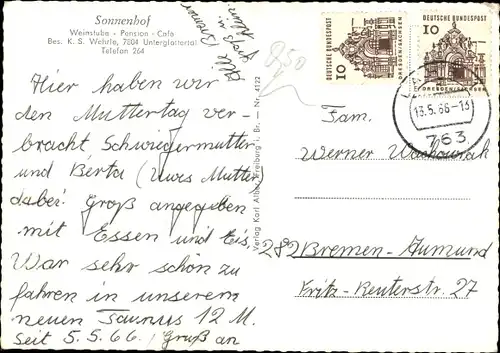 Sonnenhof
Weinstube - Pension - Cafe
Bes. K. S. Wehrle, 7804 Unterglottertal
Telefon 264
Hier haben wir
den Muttertag ver-
bracht Schwiegermutter
und Berta (Uwes Mutter)
dabei. Groß angegeben
mit Essen und Eis,
War sehr schön zu
fahren in unserem
neuen Taunus 12 M.
Seit 5.5.66, Gruß an
Alle Bremer
Verlag Karl Alber, Freiburg i. Br. — Nr. 4122
850
DEUTSCHE BUNDESPOST
10
DRESDEN/SACHSEN
DEUTSCHE BUNDESPOST
10
DRESDEN/SACHSEN
13.5.66-13
763
Fam.
Werner
282 Bremen-Aumund
Fritz-Reuterstr. 27